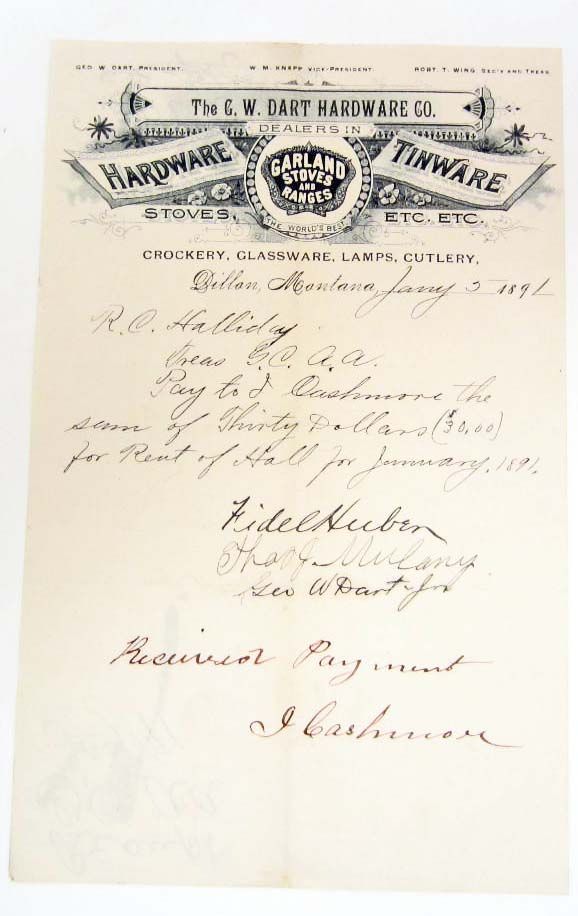 GEO. W. DART, PRESIDENT. W. M. KNAPP VICE-PRESIDENT. ROBT. T. WING, SEC'Y AND TREAS.
The G. W. DART HARDWARE CO.
DEALERS IN
HARDWARE TINWARE
GARLAND
STOVES
AND
RANGES
THE WORLD'S BEST
STOVES, ETC. ETC.
CROCKERY, GLASSWARE, LAMPS, CUTLERY,
Dillon, Montana, Jany 5 1891
R. C. Halliday
Treas G. C. A. A.
Pay to J Cashmore the
sum of Thirty Dollars ($30.00)
for Rent of Hall for January, 1891.
Fidel Huber
Geo W Dart Jr
Received Payment
J Cashmore